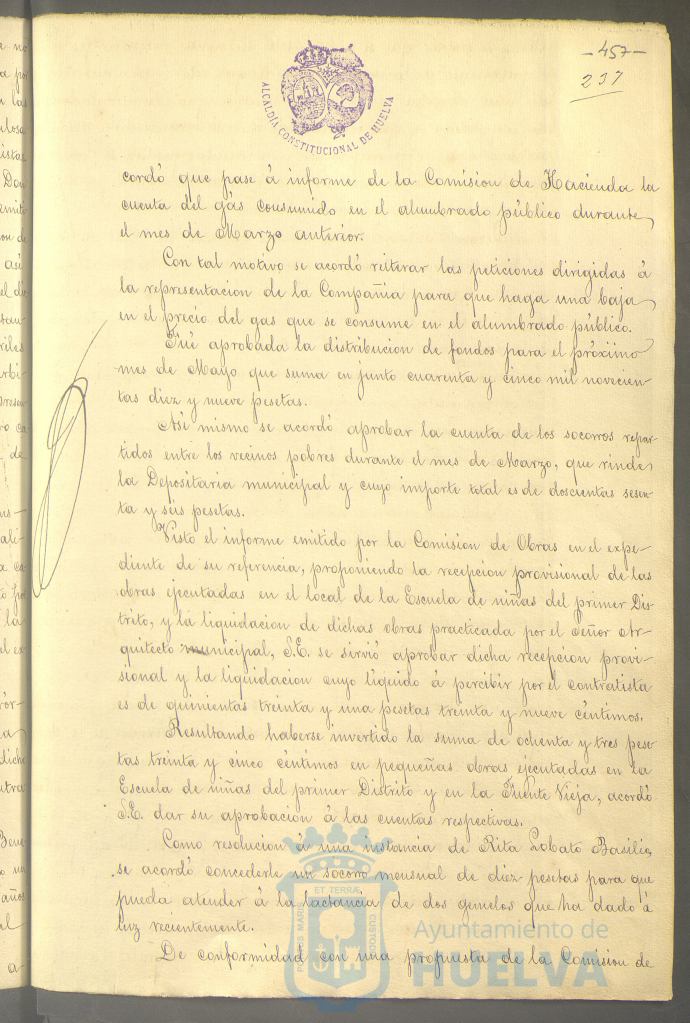 -457-
237
ALCALDÍA CONSTITUCIONAL DE HUELVA
cordó que pase á informe de la Comision de Hacienda la
cuenta del gás consumido en el alumbrado público durante
el mes de Marzo anterior.
Con tal motivo se acordó reiterar las peticiones dirigidas á
la representacion de la Compañia para que haga una baja
en el precio del gas que se consume en el alumbrado público.
Fué aprobada la distribucion de fondos para el próximo
mes de Mayo que suma en junto cuarenta y cinco mil novecien-
tas diez y nueve pesetas.
Asi mismo se acordó aprobar la cuenta de los socorros repar-
tidos entre los vecinos pobres durante el mes de Marzo, que rinde
la Depositaria municipal y cuyo importe total es de doscientas sesen-
ta y seis pesetas.
Visto el informe emitido por la Comision de Obras en el expe-
diente de su referencia, proponiendo la recepcion provisional de las
obras ejecutadas en el local de la Escuela de niñas del primer Dis-
trito, y la liquidacion de dichas obras practicada por el Señor Ar-
quitecto municipal, S.E. se sirvió aprobar dicha recepcion provi-
sional y la liquidacion cuyo líquido á percibir por el contratista
es de quinientas treinta y una pesetas treinta y nueve céntimos.
Resultando haberse invertido la suma de ochenta y tres pese-
tas treinta y cinco céntimos en pequeñas obras ejecutadas en la
Escuela de niñas del primer Distrito y en la Fuente Vieja, acordó
S.E. dar su aprobacion á las cuentas respectivas.
Como resolucion á una instancia de Rita Lobato Basilio,
se acordó concederle un socorro mensual de diez pesetas para que
pueda atender á la lactancia de dos gemelos que ha dado á
luz recientemente.
De conformidad con una propuesta de la Comision de
PORTUS MARIS ET TERRÆ CUSTODIA
Ayuntamiento de
HUELVA